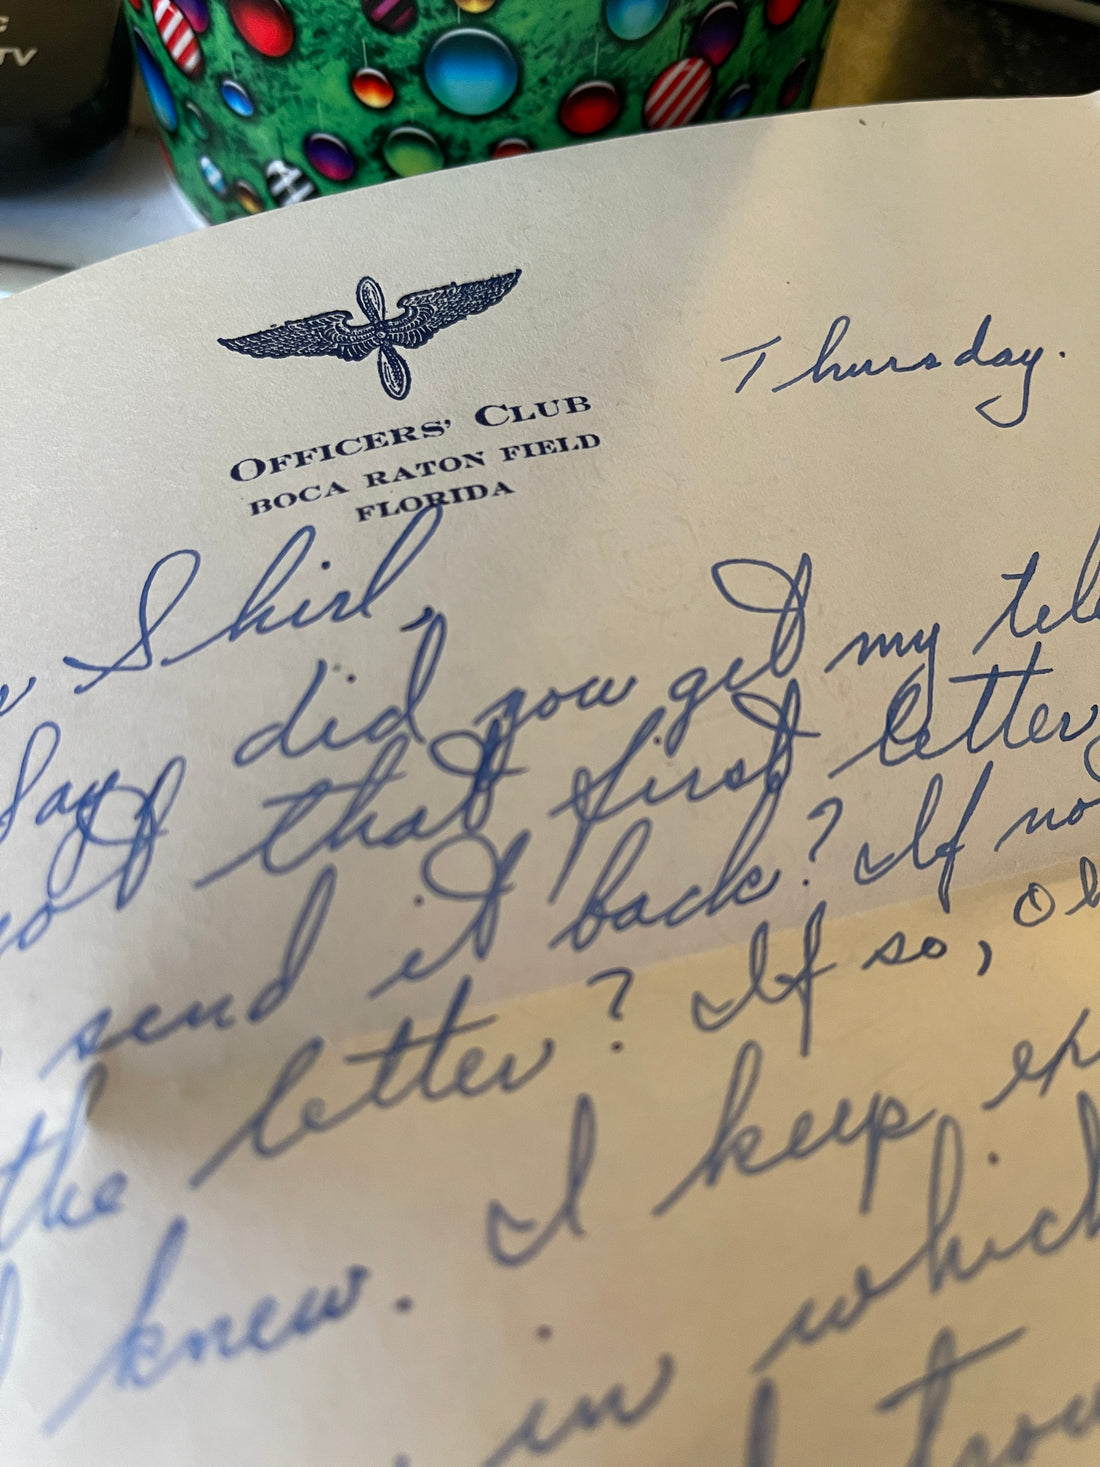 TV
OFFICERS' CLUB
BOCA RATON FIELD
FLORIDA
Thursday.
Shirl,
Say did you get my tele
got that first letter,
send it back? If no
the letter? If so, oh
knew. I keep ex
in which